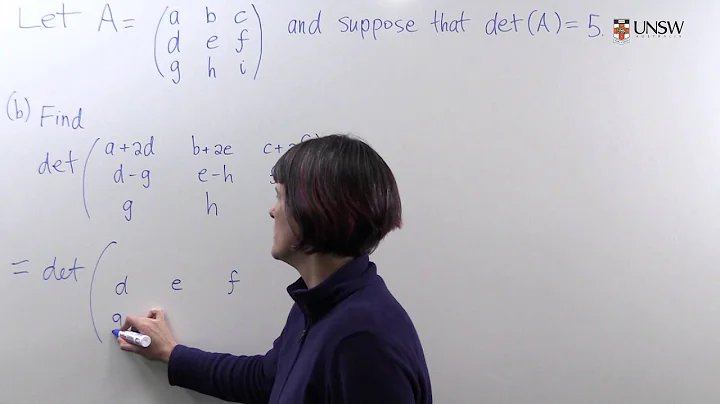 Let A = ( a b c
d e f
g h i ) and suppose that det(A) = 5.
UNSW
AUSTRALIA
(b) Find
det ( a+2d b+2e
d-g e-h
g h
= det (
d e f
g